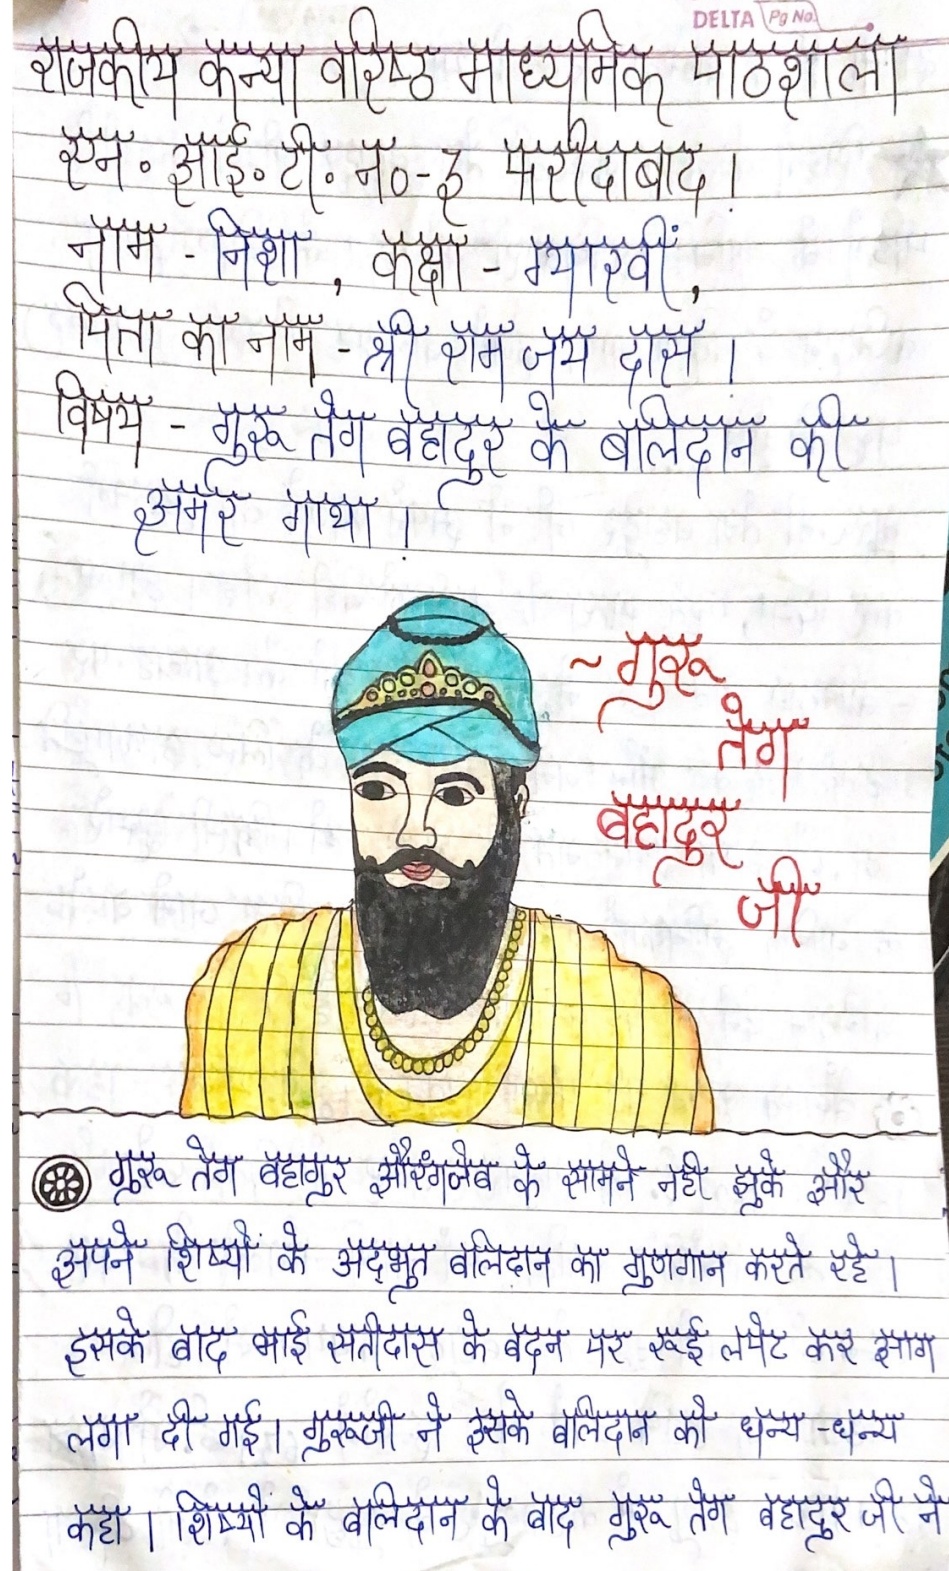 DELTA Pg No.
राजकीय कन्या वरिष्ठ माध्यमिक पाठशाला
एन. आई. टी. न०-3 फरीदाबाद ।
नाम - निशा , कक्षा - ग्यारवीं,
पिता का नाम - श्री राम जय दास ।
विषय - गुरू तेग बहादुर के बलिदान की
अमर गाथा ।
~ गुरू
तेग
बहादुर
जी
गुरू तेग बहागुर औरंगजेब के सामने नही झुके और
अपने शिष्यों के अद्भुत बलिदान का गुणगान करते रहे ।
इसके बाद भाई सतीदास के बदन पर रूई लपेट कर आग
लगा दी गई। गुरूजी ने इसके बलिदान को धन्य-धन्य
कहा । शिष्यों के बलिदान के बाद गुरू तेग बहादुर जी ने